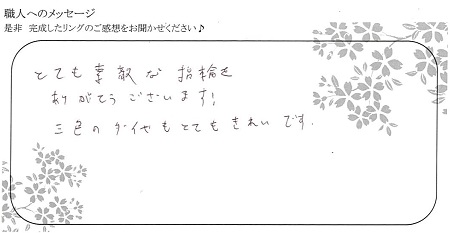 職人へのメッセージ
是非 完成したリングのご感想をお聞かせください♪
とても素敵な指輪を
ありがとうございます!
三色のダイヤもとてもきれいです.